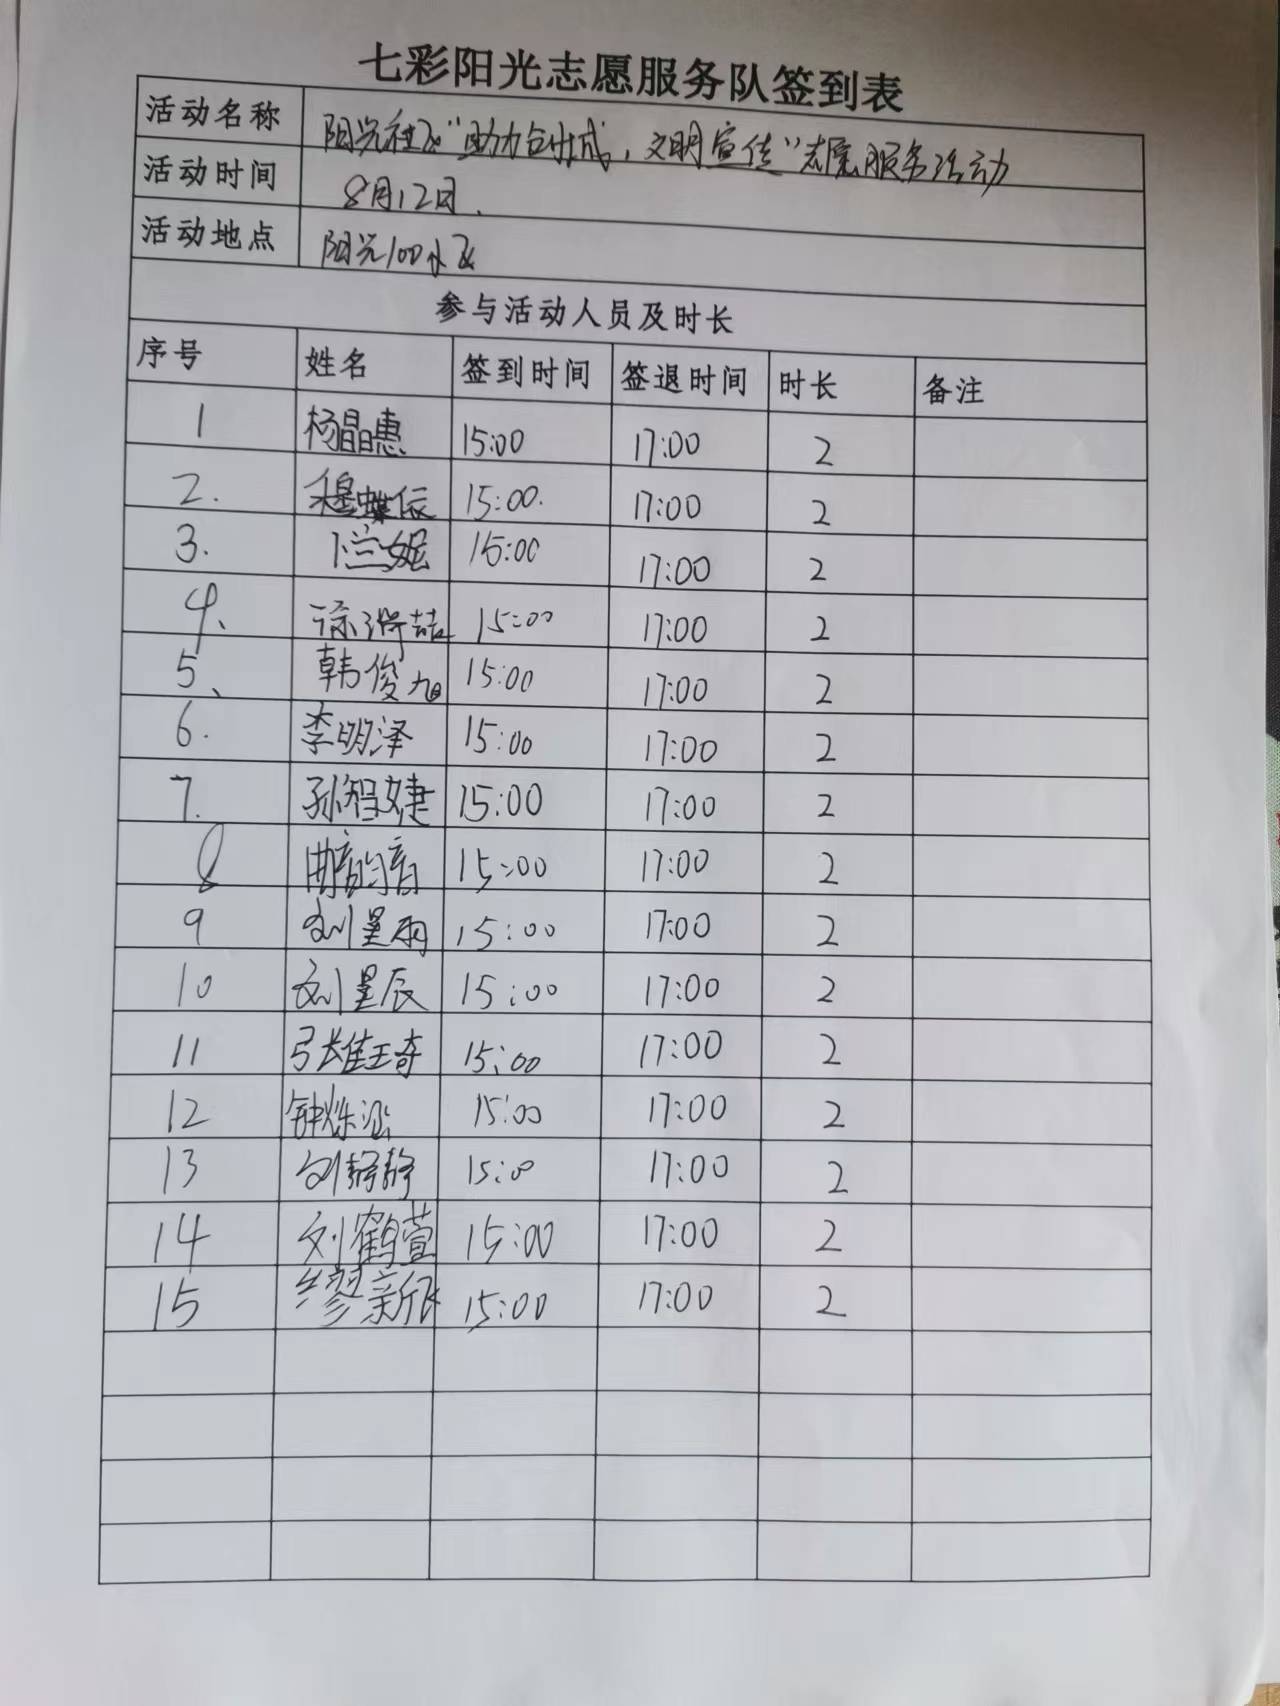 七彩阳光志愿服务队签到表
活动名称 阳光社区“助力创城，文明宣传”志愿服务活动
活动时间 8月12日.
活动地点 阳光100小区
参与活动人员及时长
序号 姓名 签到时间 签退时间 时长 备注
1 杨晶惠 15:00 17:00 2
2. 穆蝶依 15:00. 17:00 2
3. 卞兰妮 15:00 17:00 2
4、 15:00 17:00 2
5、 韩俊旭 15:00 17:00 2
6. 李明泽 15:00 17:00 2
7. 孙智婕 15:00 17:00 2
8 15:00 17:00 2
9 刘星雨 15:00 17:00 2
10 刘星辰 15:00 17:00 2
11 15:00 17:00 2
12 钟烁泓 15:00 17:00 2
13 刘静静 15:00 17:00 2
14 刘鹤萱 15:00 17:00 2
15 缪新欣 15:00 17:00 2